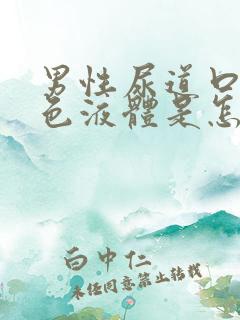 男性尿道口
色液體是怎
白中仁
未經同意禁止轉載